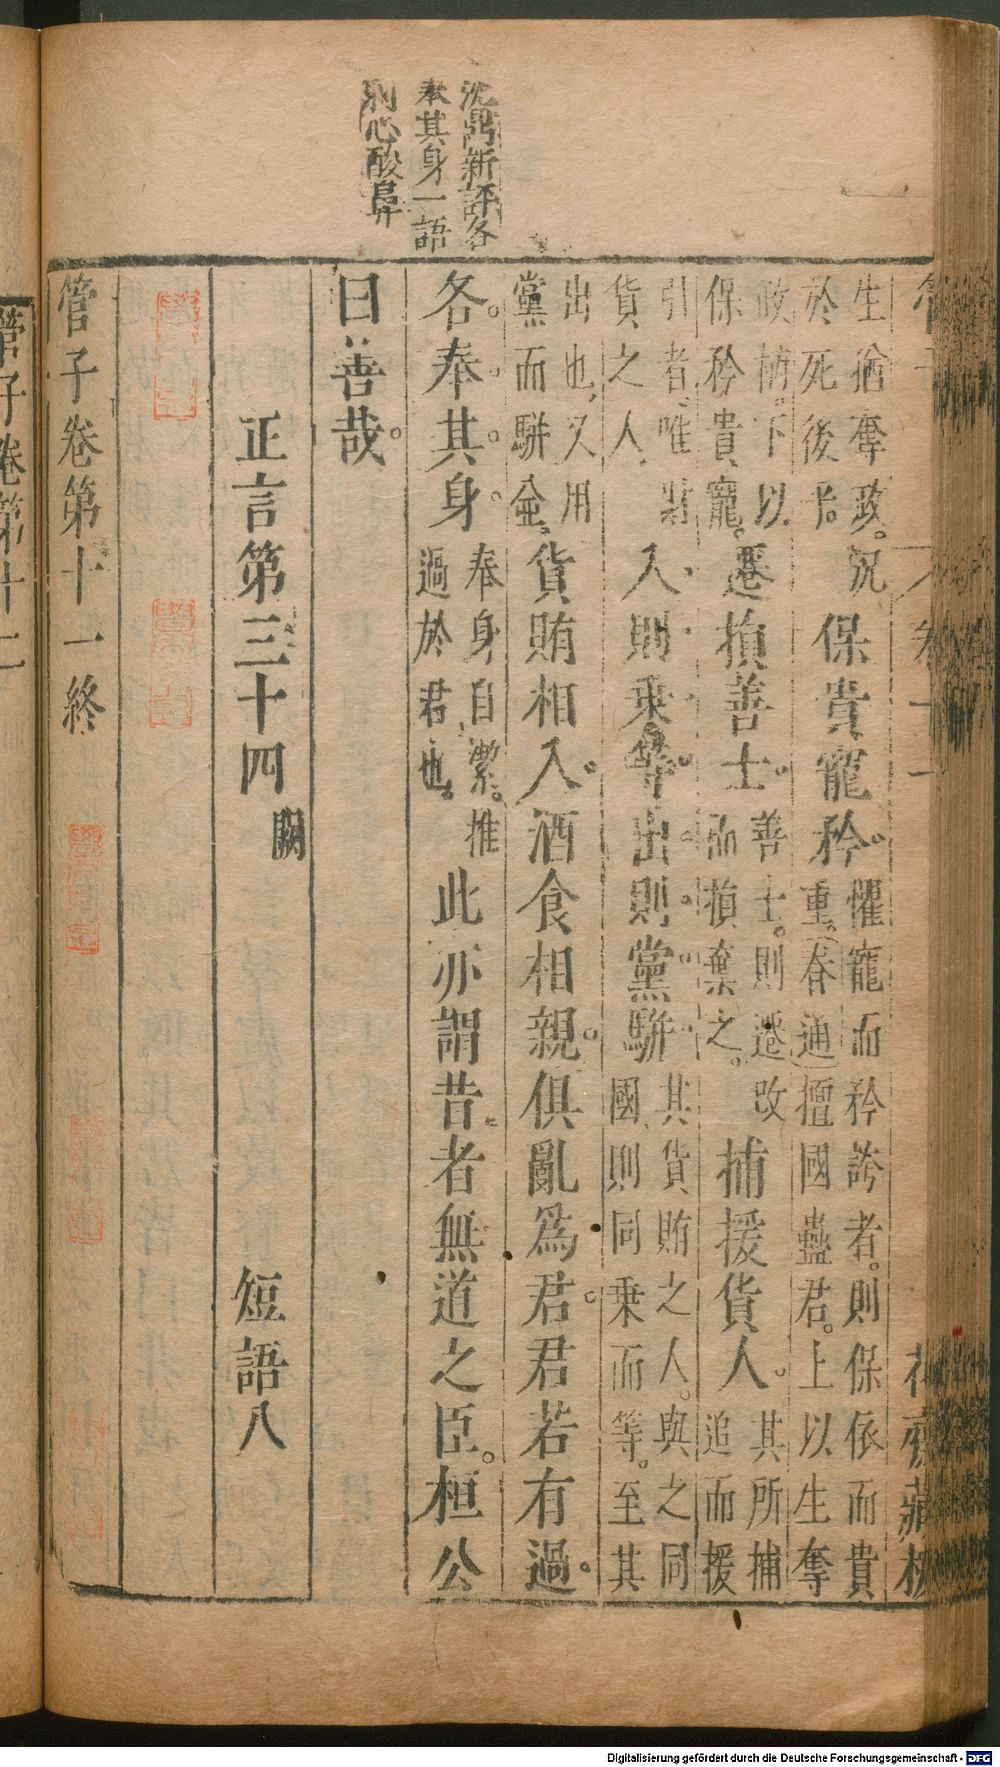 沈鼎新評各
奉其身一語
刺心酸鼻
卷十一
花齋藏板
生猶奪政。況
於死後乎。
保貴寵矜。
懼寵而矜誇者。則保依而貴
重。春通擅國蠱君。上以生奪
政柄。下以
保矜貴寵。
遷損善士。
善士。則遷改
而損棄之。
捕援貨人。
其所捕
追而援
引者、唯財
貨之人、
入則乘等。出則黨駢
其貨賄之人。與之同
國則同乘而等。至其
出也、又用
黨而駢金。
貨賄相入。酒食相親。俱亂為君。君若有過。
各奉其身。
奉身自潔。推
過於君也。
此亦謂昔者無道之臣。桓公
曰善哉。
正言第三十四 闕 短語八
管子卷第十一終
管子卷第十二
Digitalisierung gefördert durch die Deutsche Forschungsgemeinschaft - DFG